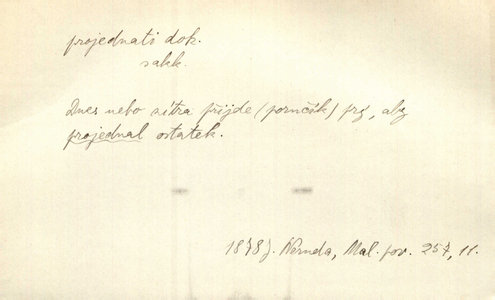 projednati dok.
zakk.
Dnes nebo zítra přijde (poručík) prý, aby
projednal ostatek.
1878 J. Neruda, Mal. pov. 257, 11.